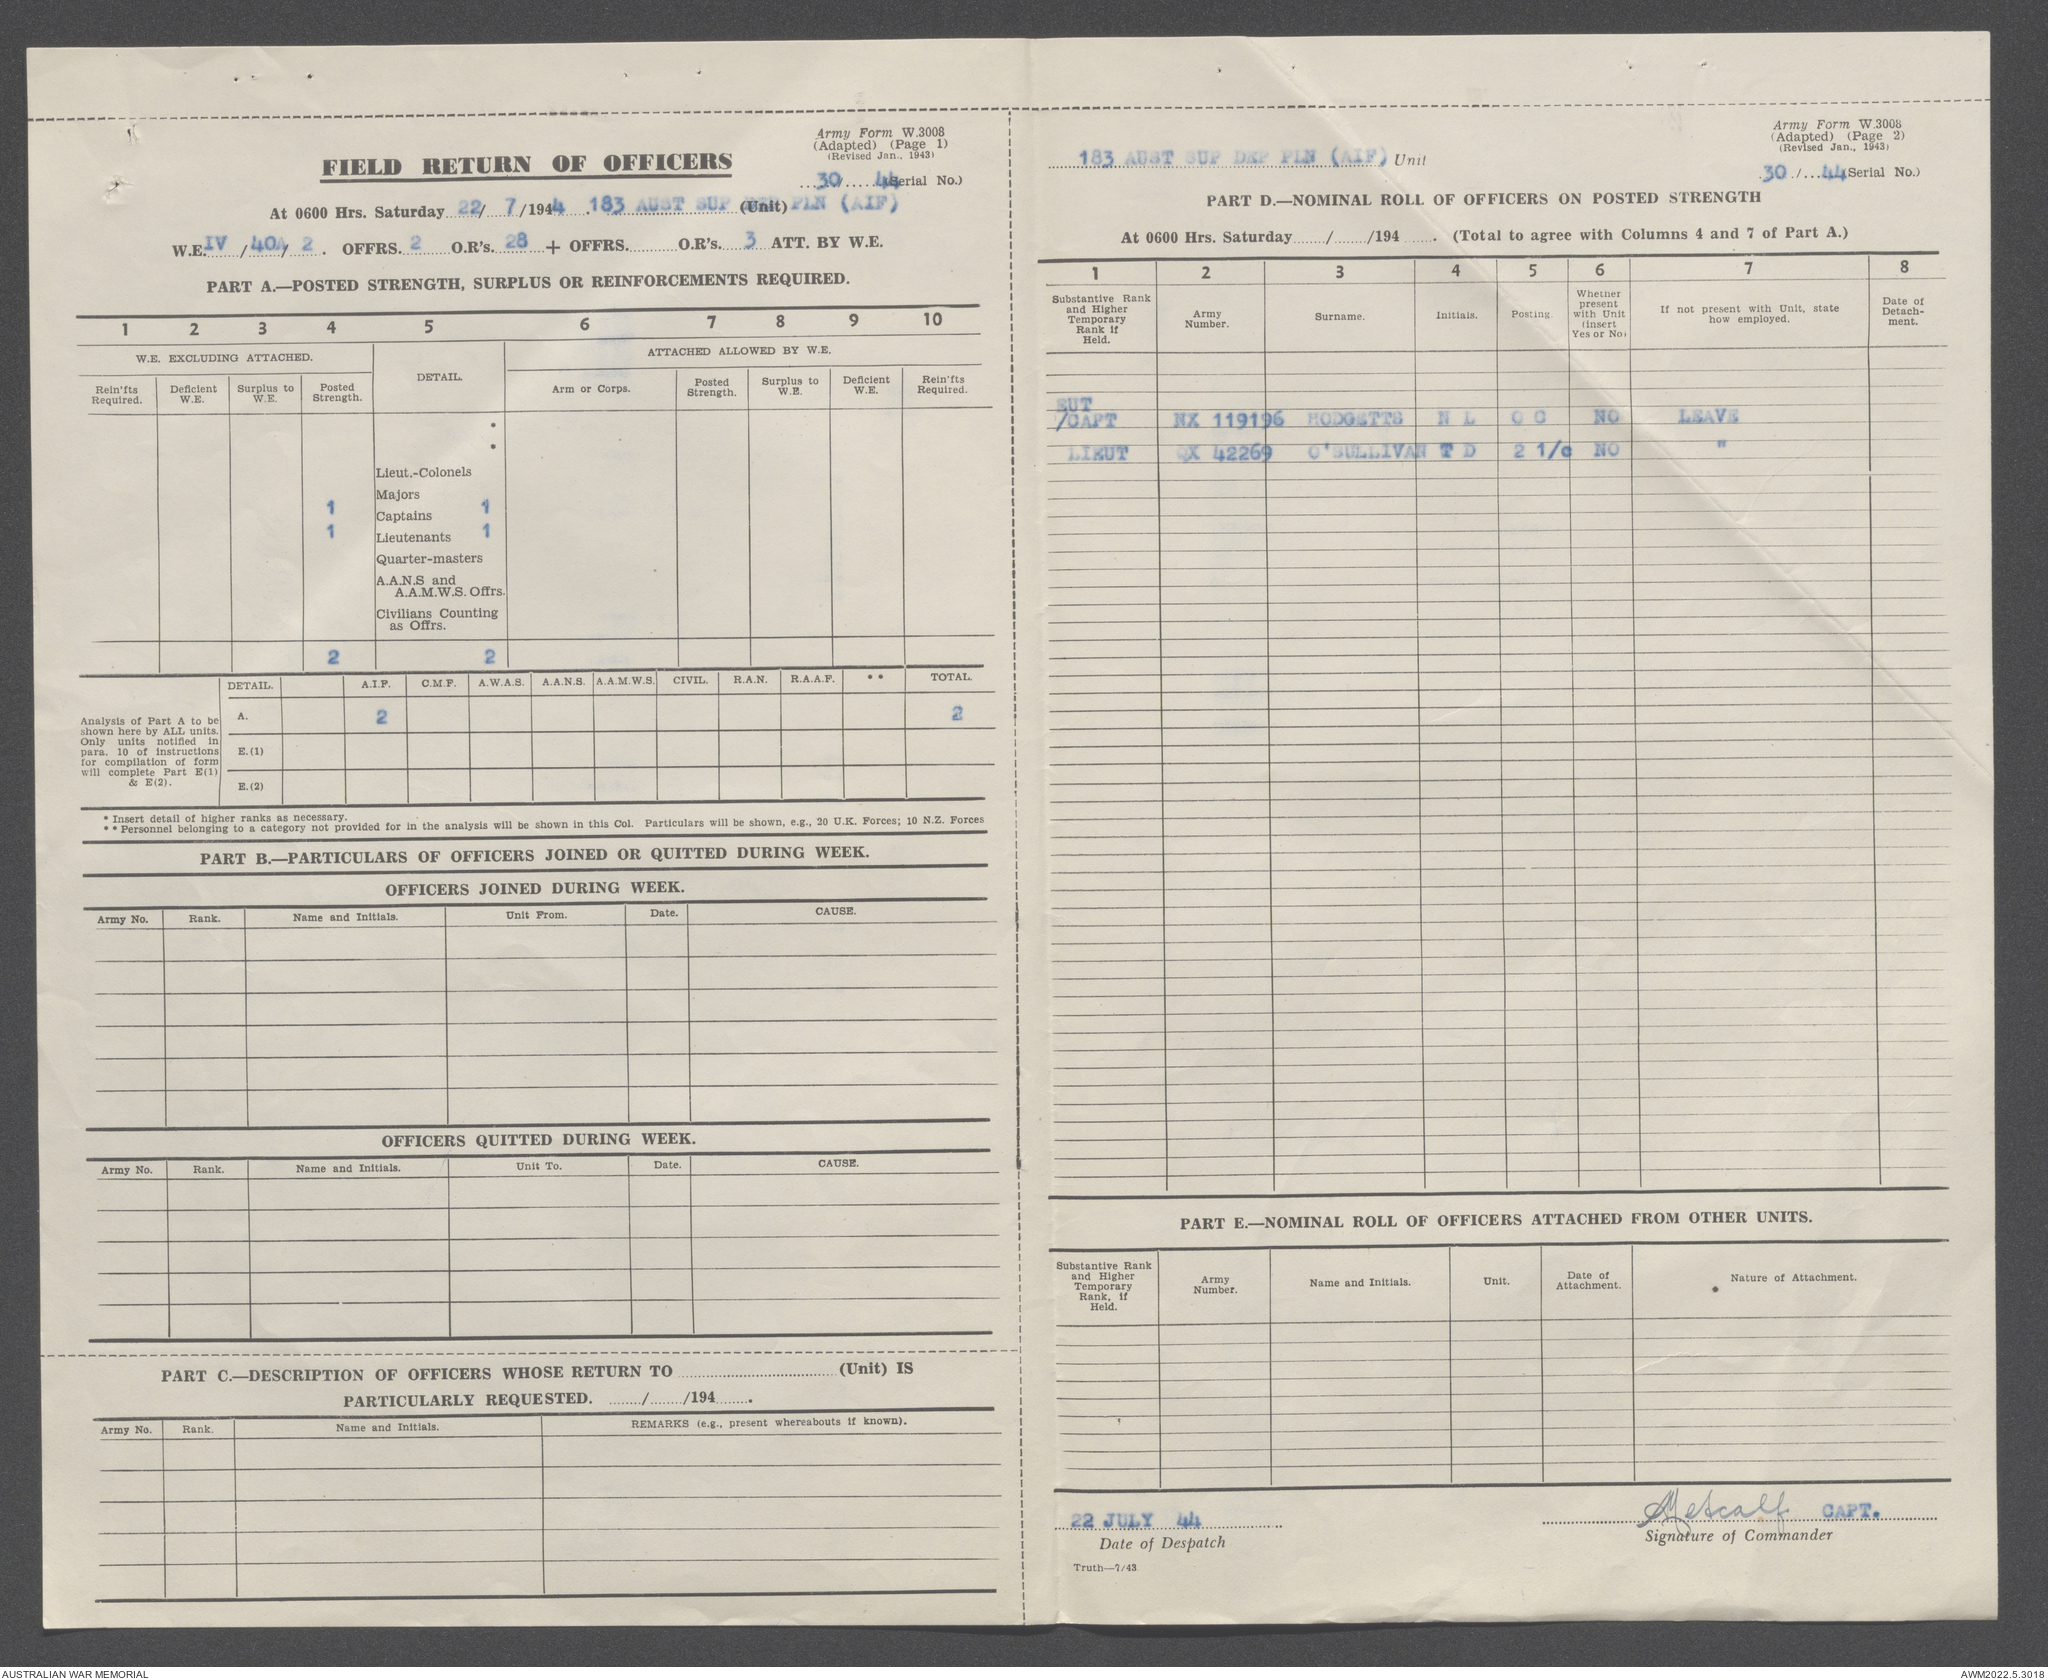 Army Form W.3008
(Adapted) (Page 1)
(Revised Jan., 1943)
FIELD RETURN OF OFFICERS
30/ 44 (Serial No.)
At 0600 Hrs. Saturday 22/ 7/1944 183 AUST SUP DEP PLN (AIF) (Unit)
W.E. IV /40A/ 2. OFFRS. 2 O.R's. 28 + OFFRS. O.R's. 3 ATT. BY W.E.
PART A.—POSTED STRENGTH, SURPLUS OR REINFORCEMENTS REQUIRED.
1 2 3 4 5 6 7 8 9 10
W.E. EXCLUDING ATTACHED. DETAIL. ATTACHED ALLOWED BY W.E.
Rein'fts Required. Deficient W.E. Surplus to W.E. Posted Strength. Arm or Corps. Posted Strength. Surplus to W.E. Deficient W.E. Rein'fts Required.
*
*
Lieut.-Colonels
Majors
1 Captains 1
1 Lieutenants 1
Quarter-masters
A.A.N.S and
A.A.M.W.S. Offrs.
Civilians Counting
as Offrs.
2 2
DETAIL. A.I.F. C.M.F. A.W.A.S. A.A.N.S. A.A.M.W.S. CIVIL. R.A.N. R.A.A.F. ** TOTAL.
Analysis of Part A to be
shown here by ALL units.
Only units notified in
para. 10 of instructions
for compilation of form
will complete Part E(1)
& E(2).
A. 2 2
E.(1)
E.(2)
* Insert detail of higher ranks as necessary.
** Personnel belonging to a category not provided for in the analysis will be shown in this Col. Particulars will be shown, e.g., 20 U.K. Forces; 10 N.Z. Forces
PART B.—PARTICULARS OF OFFICERS JOINED OR QUITTED DURING WEEK.
OFFICERS JOINED DURING WEEK.
Army No. Rank. Name and Initials. Unit From. Date. CAUSE.
OFFICERS QUITTED DURING WEEK.
Army No. Rank. Name and Initials. Unit To. Date. CAUSE.
PART C.—DESCRIPTION OF OFFICERS WHOSE RETURN TO (Unit) IS
PARTICULARLY REQUESTED. / /194 .
Army No. Rank. Name and Initials. REMARKS (e.g., present whereabouts if known).
Army Form W.3008
(Adapted) (Page 2)
(Revised Jan., 1943)
183 AUST SUP DEP PLN (AIF) Unit
30 / 44 (Serial No.)
PART D.—NOMINAL ROLL OF OFFICERS ON POSTED STRENGTH
At 0600 Hrs. Saturday / /194 . (Total to agree with Columns 4 and 7 of Part A.)
1 2 3 4 5 6 7 8
Substantive Rank and Higher Temporary Rank if Held. Army Number. Surname. Initials. Posting. Whether present with Unit (insert Yes or No) If not present with Unit, state how employed. Date of Detach-ment.
/CAPT NX 119196 HODGETTS N L O C NO LEAVE
LIEUT QX 42269 O'SULLIVAN T D 2 1/c NO "
PART E.—NOMINAL ROLL OF OFFICERS ATTACHED FROM OTHER UNITS.
Substantive Rank and Higher Temporary Rank, if Held. Army Number. Name and Initials. Unit. Date of Attachment. Nature of Attachment.
22 JULY 44
Date of Despatch
Metcalf CAPT.
Signature of Commander
Truth—7/43
AUSTRALIAN WAR MEMORIAL
AWM2022.5.3018